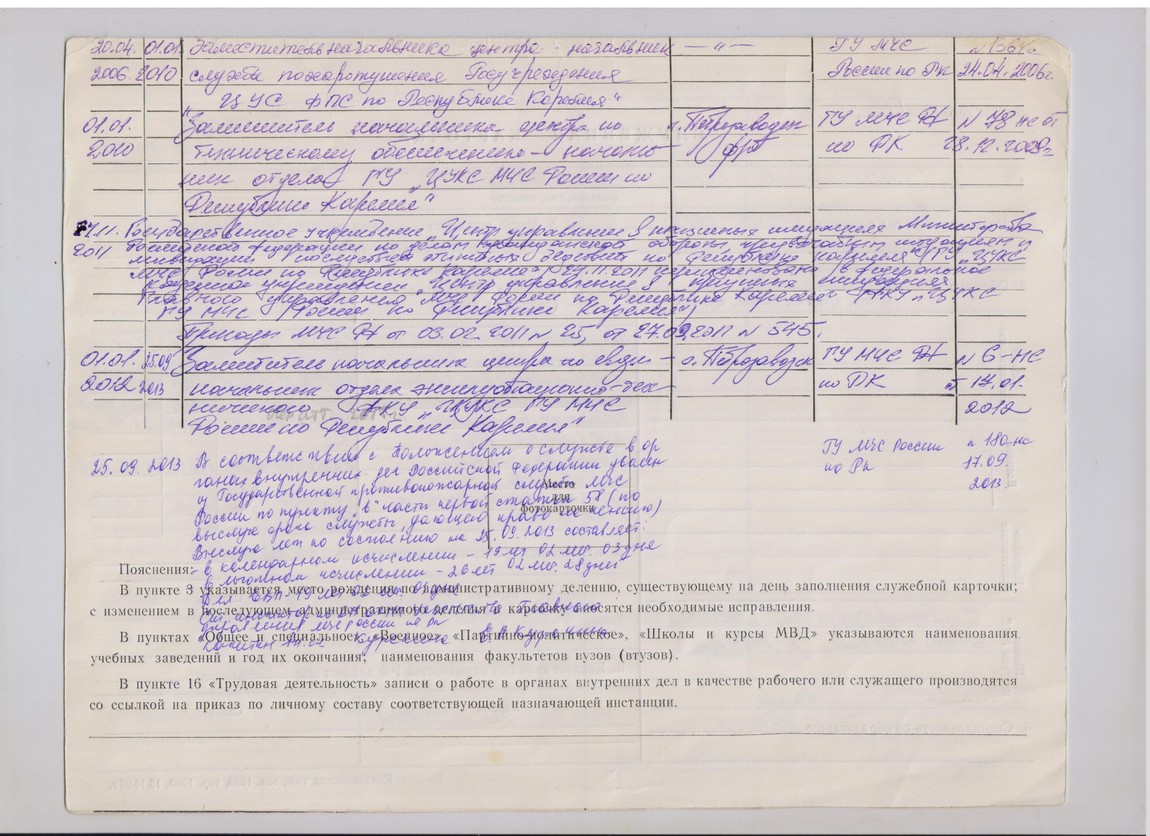 20.04. 01.01 Заместитель начальника центра - начальник — „ — ГУ МЧС
2006 2010 службы пожаротушения Госучреждения России по РК 24.04.2006г.
"ЦУС ФПС по Республике Карелия"
01.01. Заместитель начальника центра по г. Петрозаводск ГУ МЧС РФ N 78 НС от
2010 техническому обеспечению - началь по РК 28.12.2009г
ник отдела ГУ „ЦУКС МЧС России по
Республике Карелия"
11. Государственное учреждение „Центр управления в кризисных ситуациях Министерства
2011 Российской Федерации по делам гражданской обороны, чрезвычайным ситуациям и
ликвидации последствий стихийных бедствий по Республике Карелия" (ГУ „ЦУКС
МЧС России по Республике Карелия") 2011 переименовано в федеральное
казенное учреждение „Центр управления в кризисных ситуациях
Главного управления МЧС России по Республике Карелия" (ФКУ „ЦУКС
ГУ МЧС России по Республике Карелия")
Приказы МЧС РФ от 03.02.2011 N 25, от 27.09.2011 N 545.
01.01. 25.09 Заместитель начальника центра по связи - г. Петрозаводск ГУ МЧС РФ N 6-НС
2012 2013 начальник отдела эксплуатационно-тех по РК от 17.01.
нического ФКУ „ЦУКС ГУ МЧС 2012
России по Республике Карелия"
25.09.2013 В соответствии с Положением о службе в ор ГУ МЧС России N 180-нс
ганах внутренних дел Российской Федерации уволен по РК 17.09.
из Государственной противопожарной службы МЧС 2013
Место
России по пункту „в" части первой статьи 58 (по
для
выслуге срока службы, дающего право на пенсию)
фотокарточки
Выслуга лет по состоянию на 25.09.2013 составляет:
в календарном исчислении - 19 лет 02 мес. 03 дня
Пояснения:
в льготном исчислении - 26 лет 02 мес. 28 дней
В пункте 3 указывается место рождения по административному делению, существующему на день заполнения служебной карточки;
с изменением в последующем административного деления в карточку вносятся необходимые исправления.
управления МЧС России по РК
В пунктах «Общее и специальное», «Военное», «Партийно-политическое», «Школы и курсы МВД» указываются наименования
учебных заведений и год их окончания, наименования факультетов вузов (втузов).
В пункте 16 «Трудовая деятельность» записи о работе в органах внутренних дел в качестве рабочего или служащего производятся
со ссылкой на приказ по личному составу соответствующей назначающей инстанции.